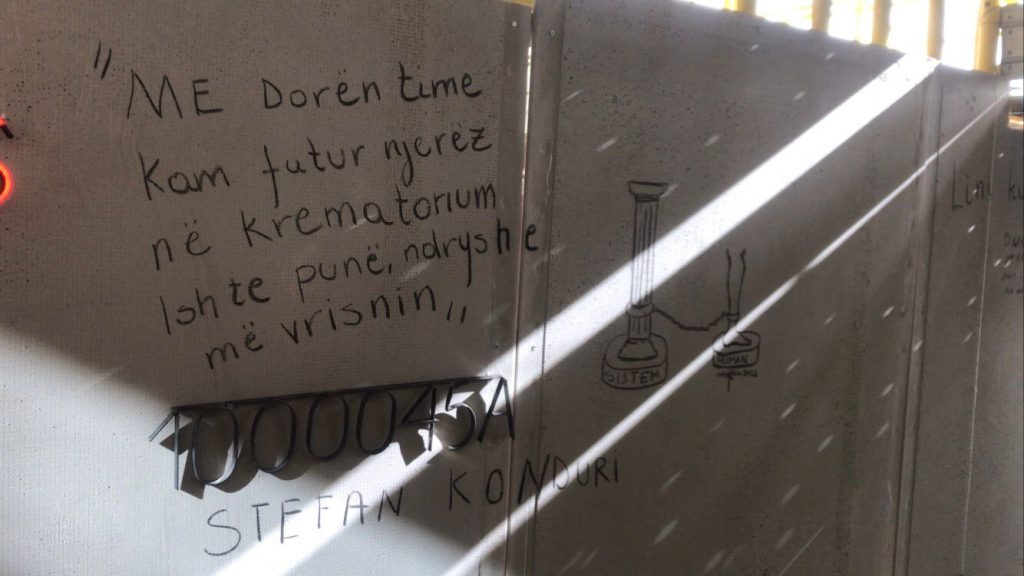 "ME Dorën time
Kam futur njerëz
në krematorium
Ishte punë, ndryshe
më vrisnin,,
1000045A
STEFAN KONDURI
SISTEM
HUMAN
Lini